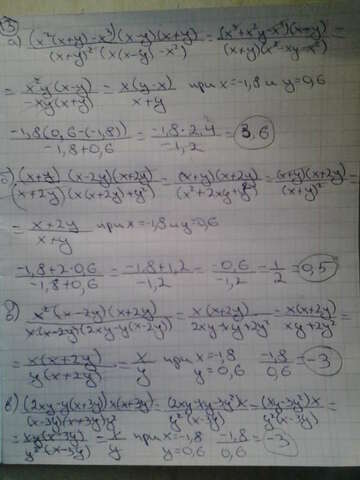 3)
а) (x²(x+y)-x³)(x-y)(x+y) / (x+y)²(x(x-y)-x²) = (x³+x²y-x³)(x-y) / (x+y)(x²-xy-x²) =
= x²y(x-y) / -xy(x+y) = x(y-x) / x+y при x=-1,8 и y=0,6
-1,8(0,6-(-1,8)) / -1,8+0,6 = -1,8·2,4 / -1,2 = 3,6
б) (x+y)(x-2y)(x+2y) / (x+2y)(x(x+2y)+y²) = (x+y)(x+2y) / (x²+2xy+y²) = (x+y)(x+2y) / (x+y)² =
= x+2y / x+y при x=-1,8 и y=0,6
-1,8+2·0,6 / -1,8+0,6 = -1,8+1,2 / -1,2 = -0,6 / -1,2 = 1/2 = 0,5
в) x²(x-2y)(x+2y) / x(x-2y)(2xy-y(x-2y)) = x(x+2y) / 2xy-xy+2y² = x(x+2y) / xy+2y² =
= x(x+2y) / y(x+2y) = x/y при x=-1,8 y=0,6 -1,8/0,6 = -3
в) (2xy-y(x+3y))x(x+3y) / (x-3y)(x+3y)y² = (2xy-xy-3y²)x / y²(x-3y) = (xy-3y²)x / y²(x-3y) =
= xy(x-3y) / y²(x-3y) = x/y при x=-1,8 y=0,6 -1,8/0,6 = -3